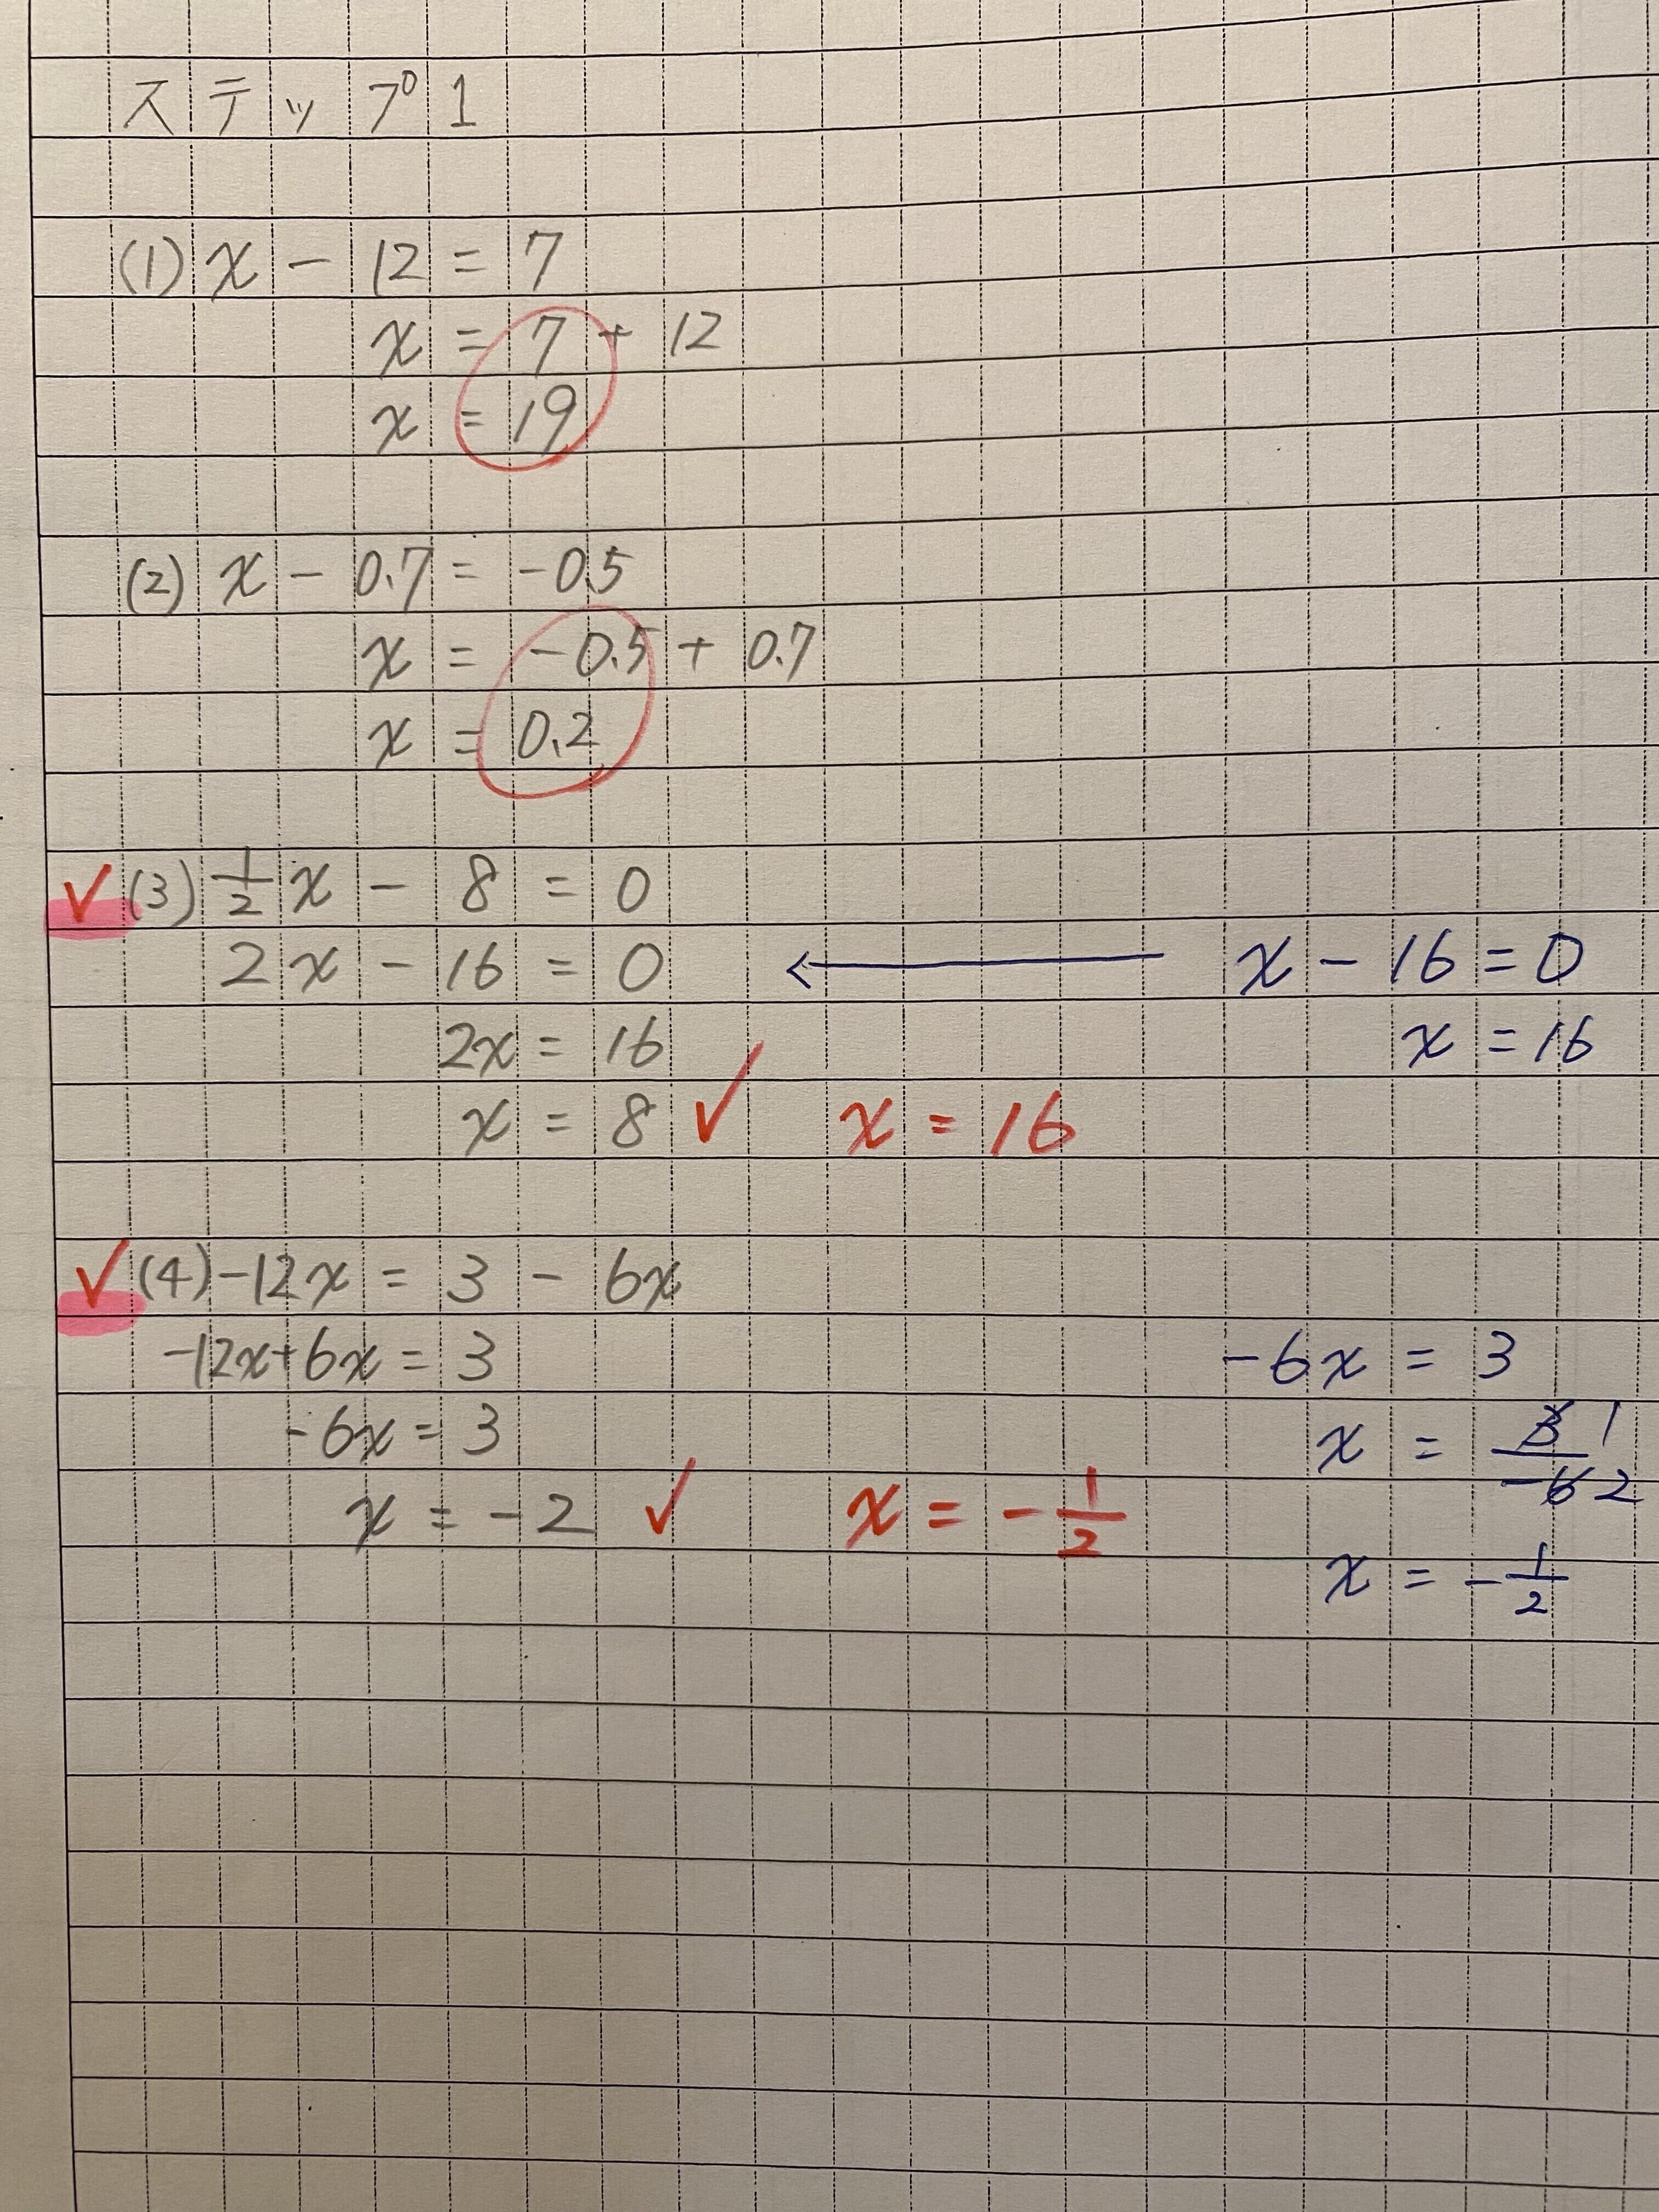 ステップ1
(1) x - 12 = 7
x = 7 + 12
x = 19
(2) x - 0.7 = -0.5
x = -0.5 + 0.7
x = 0.2
✓ (3) 1/2 x - 8 = 0
2x - 16 = 0 ← x - 16 = 0
2x = 16 x = 16
x = 8 ✓ x = 16
✓ (4) -12x = 3 - 6x
-12x+6x = 3 -6x = 3
-6x = 3 x = 3 1/-6 2
x = -2 ✓ x = -1/2
x = -1/2